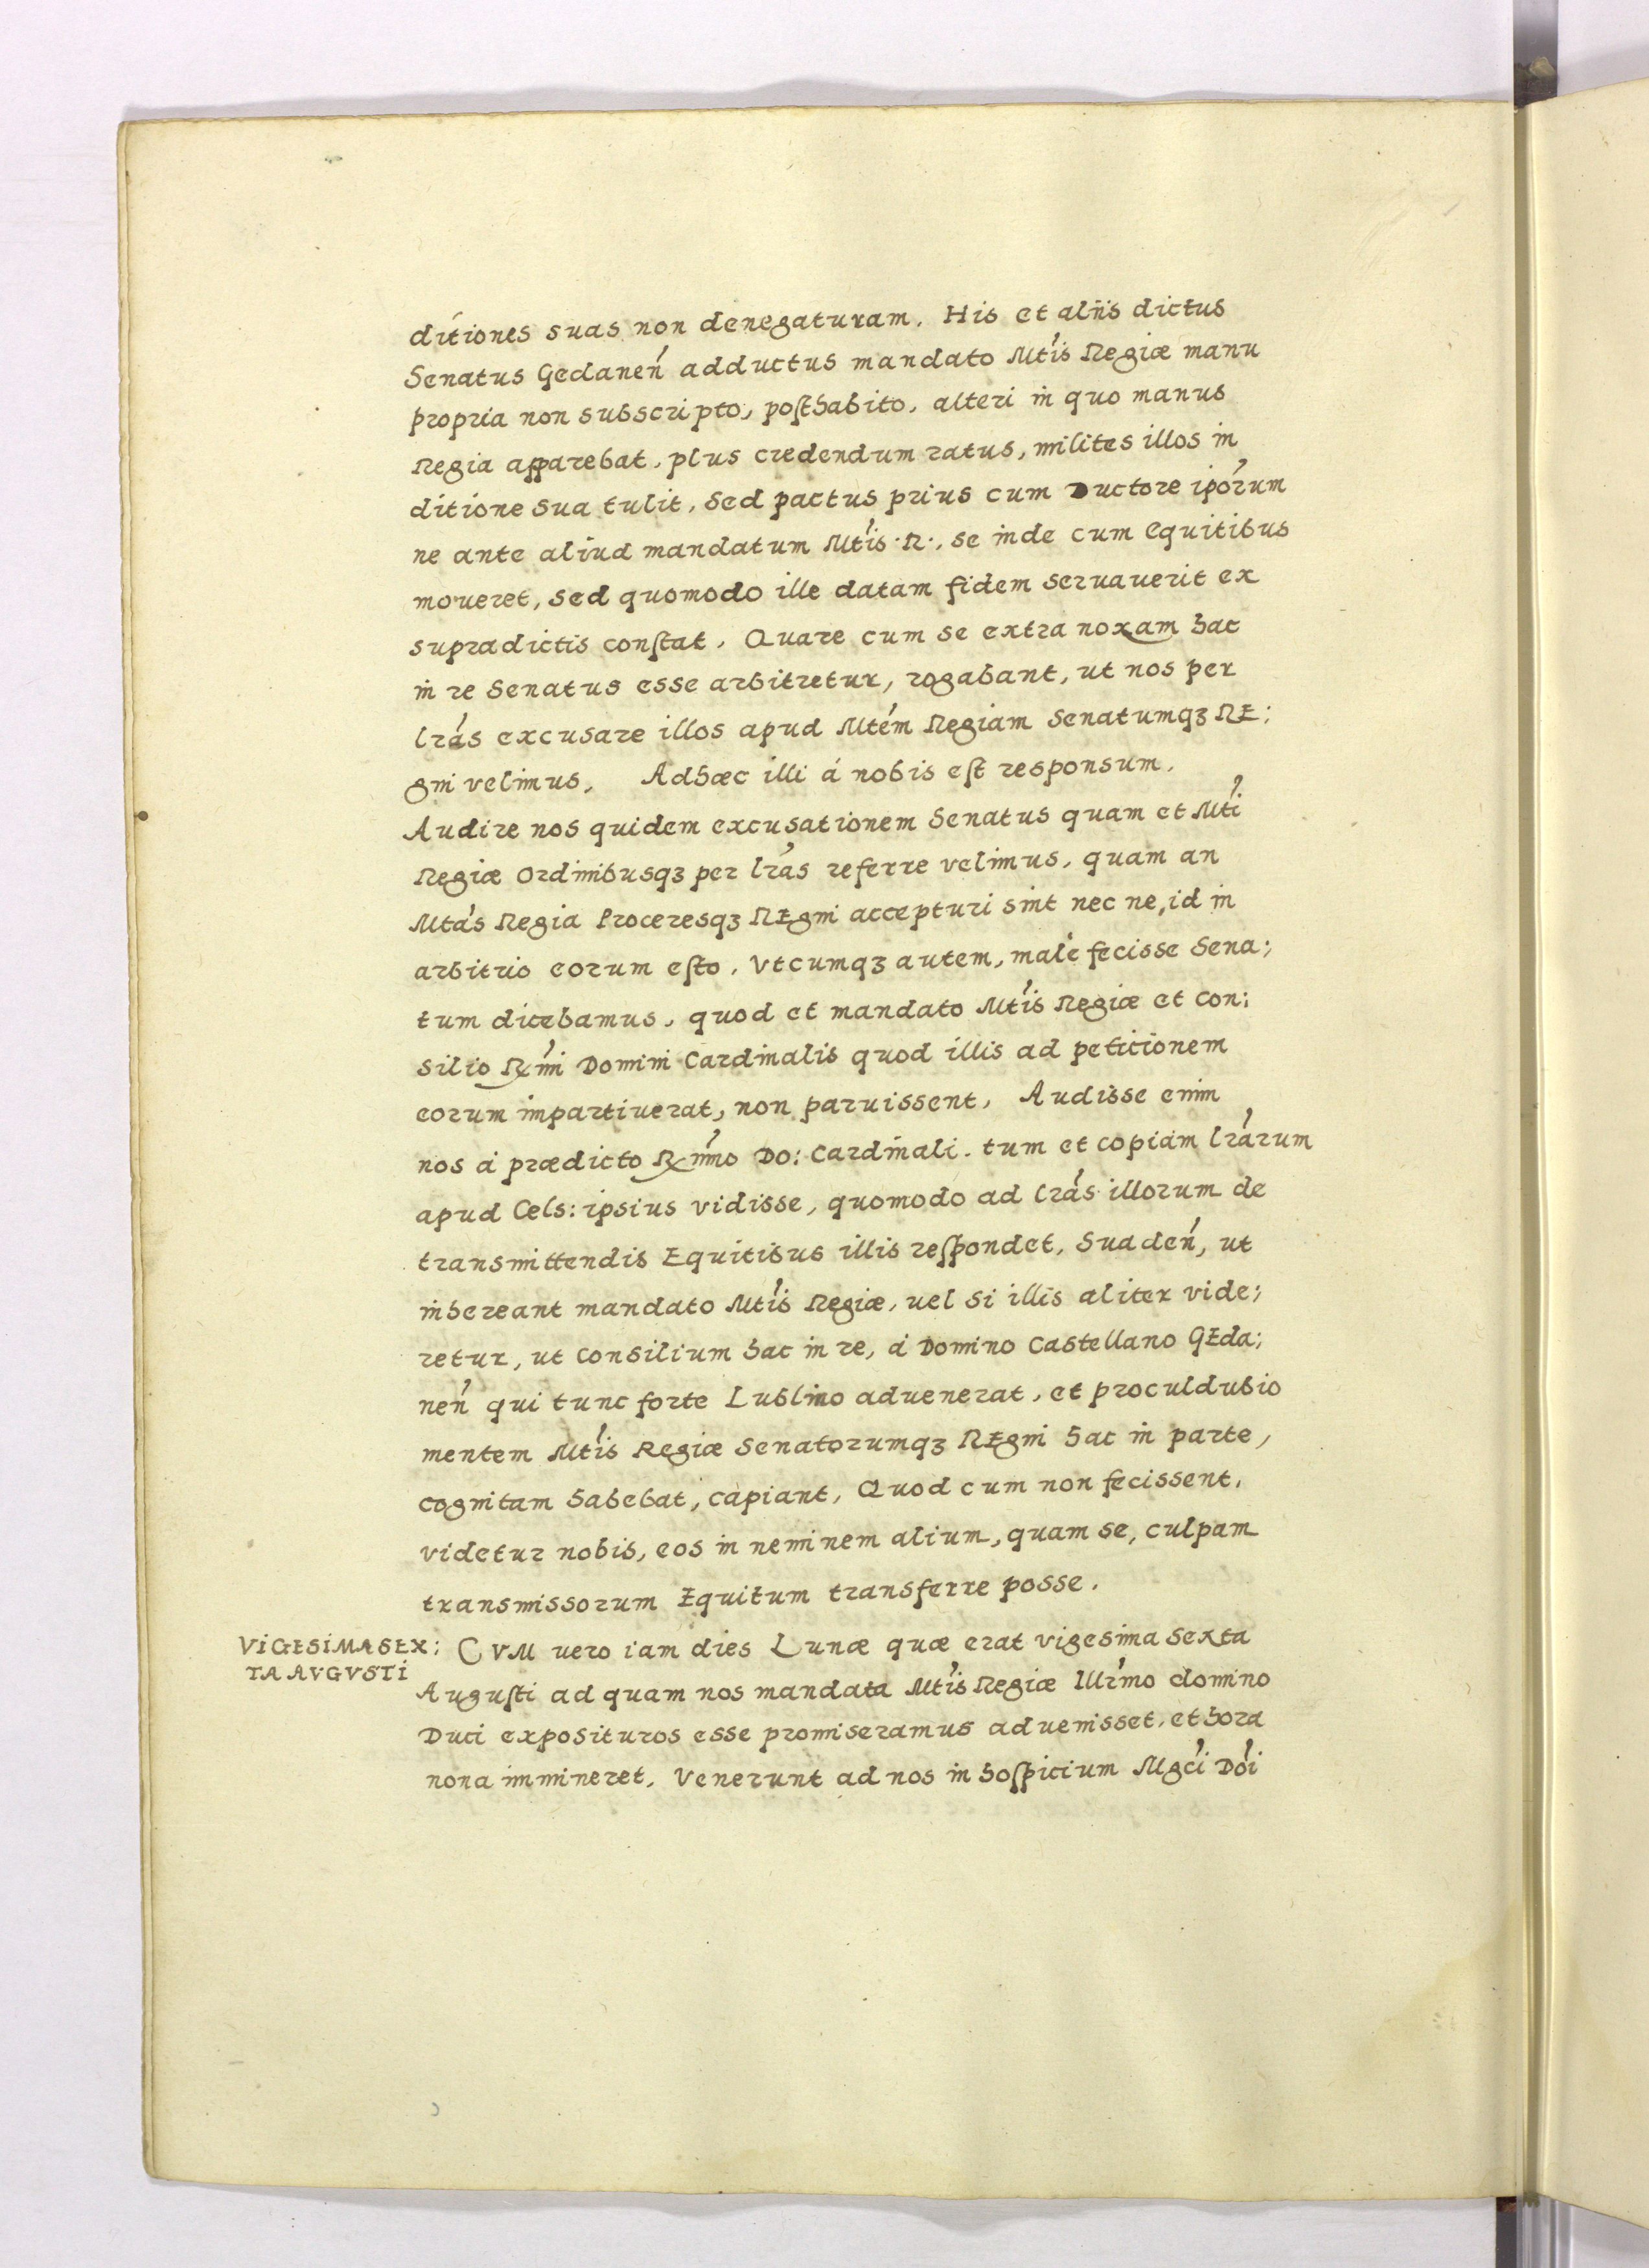 ditiones suas non denegaturam. His et alÿs dictus
Senatus Gedaneń adductus mandato Mtis Regiæ manu
propria non subscripto, posthabito, alteri in quo manus
Regia apparebat, plus credendum ratus, milites illos in
ditione sua tulit, Sed pactus prius cum Ductore ipórum
ne ante aliud mandatum Mtis R., se inde cum Equitibus
moveret, sed quomodo ille datam fidem servauerit ex
supradictis constat. Quare cum se extra noxam hac
in re Senatus esse arbitretur, rogabant, ut nos per
lrás excusare illos apud Mtém Regiam Senatumqꝫ RE:
gni velimus. Ad hæc illi á nobis est responsum.
Audire nos quidem excusationem Senatus quam et Mti
Regiæ Ordinibusqꝫ per lrás referre velimus, quam an
Mtás Regia Proceresqꝫ REgni accepturi sint nec ne, id in
arbitrio eorum esto. Vtcumqꝫ autem, malè fecisse Sena:
tum dicebamus, quod et mandato Mtis Regiæ et con:
silio Rmi Domini Cardinalis quod illis ad petitionem
eorum impartiuerat, non paruissent, Audisse enim
nos á prædicto Rmo Do: Cardinali. tum et copiam lrárum
apud Cels: ipsius vidisse, quomodo ad lrás illorum de
transmittendis Equitibus illis respondet, Suadeń, ut
inhereant mandato Mtis Regiæ, uel si illis aliter vide:
retur, ut consilium hac in re, á Domino Castellano GEda:
neń qui tunc forte Lublino aduenerat, et proculdubio
mentem Mtis Regiæ Senatorumqꝫ REgni hac in parte,
cognitam habebat, capiant, Quod cum non fecissent,
videtur nobis, eos in neminem alium, quam se, culpam
transmissorum Equitum transferre posse.
VIGESIMA SEX:
TA AVGVSTI
CVM uero iam dies Lunæ quæ erat vigesima sexta
Augusti ad quam nos mandata Mtis Regiæ Illrmo domino
Duci exposituros esse promiseramus aduenisset, et hora
nona immineret, Venerunt ad nos in hospitium Mgci Dói